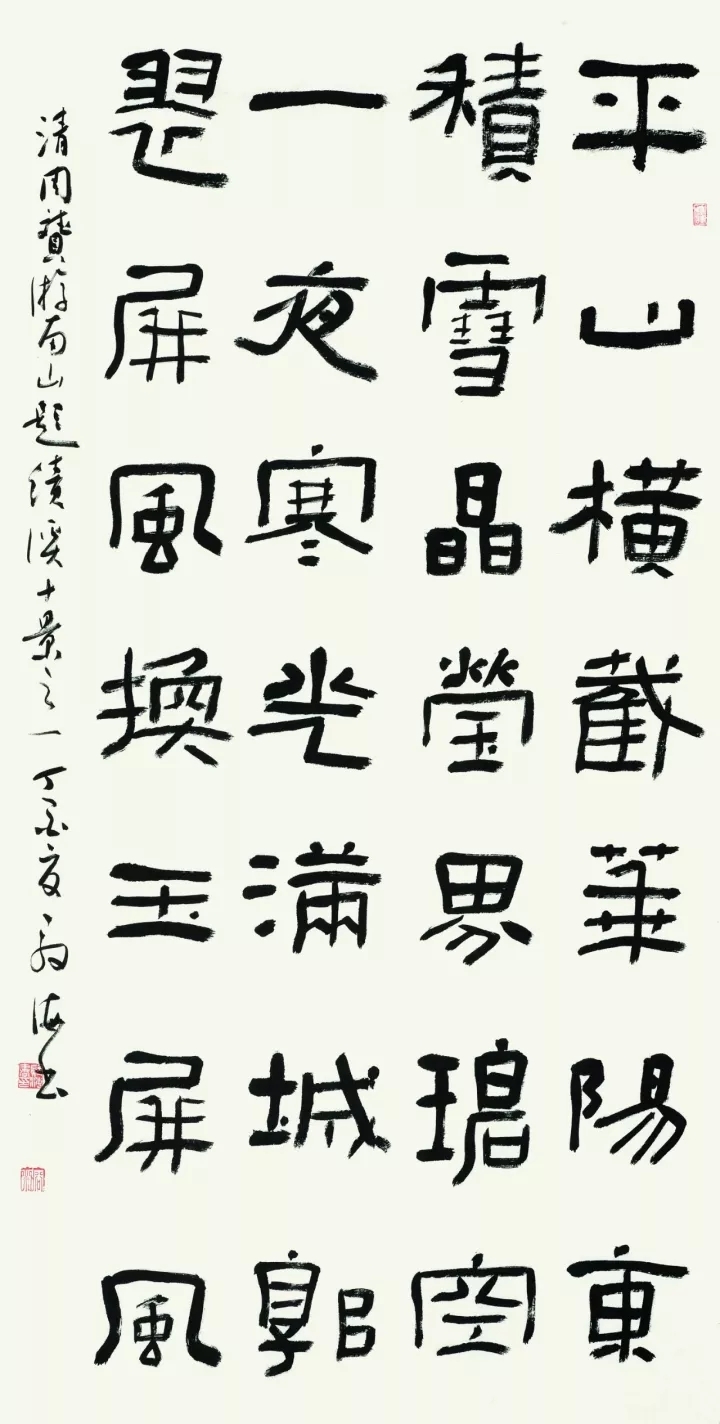 平山橫截華陽東
積雪晶瑩界碧空
一夜寒光滿城郭
翠屏風換玉屏風
清周贇游南山題績溪十景之一 丁酉夏 海书